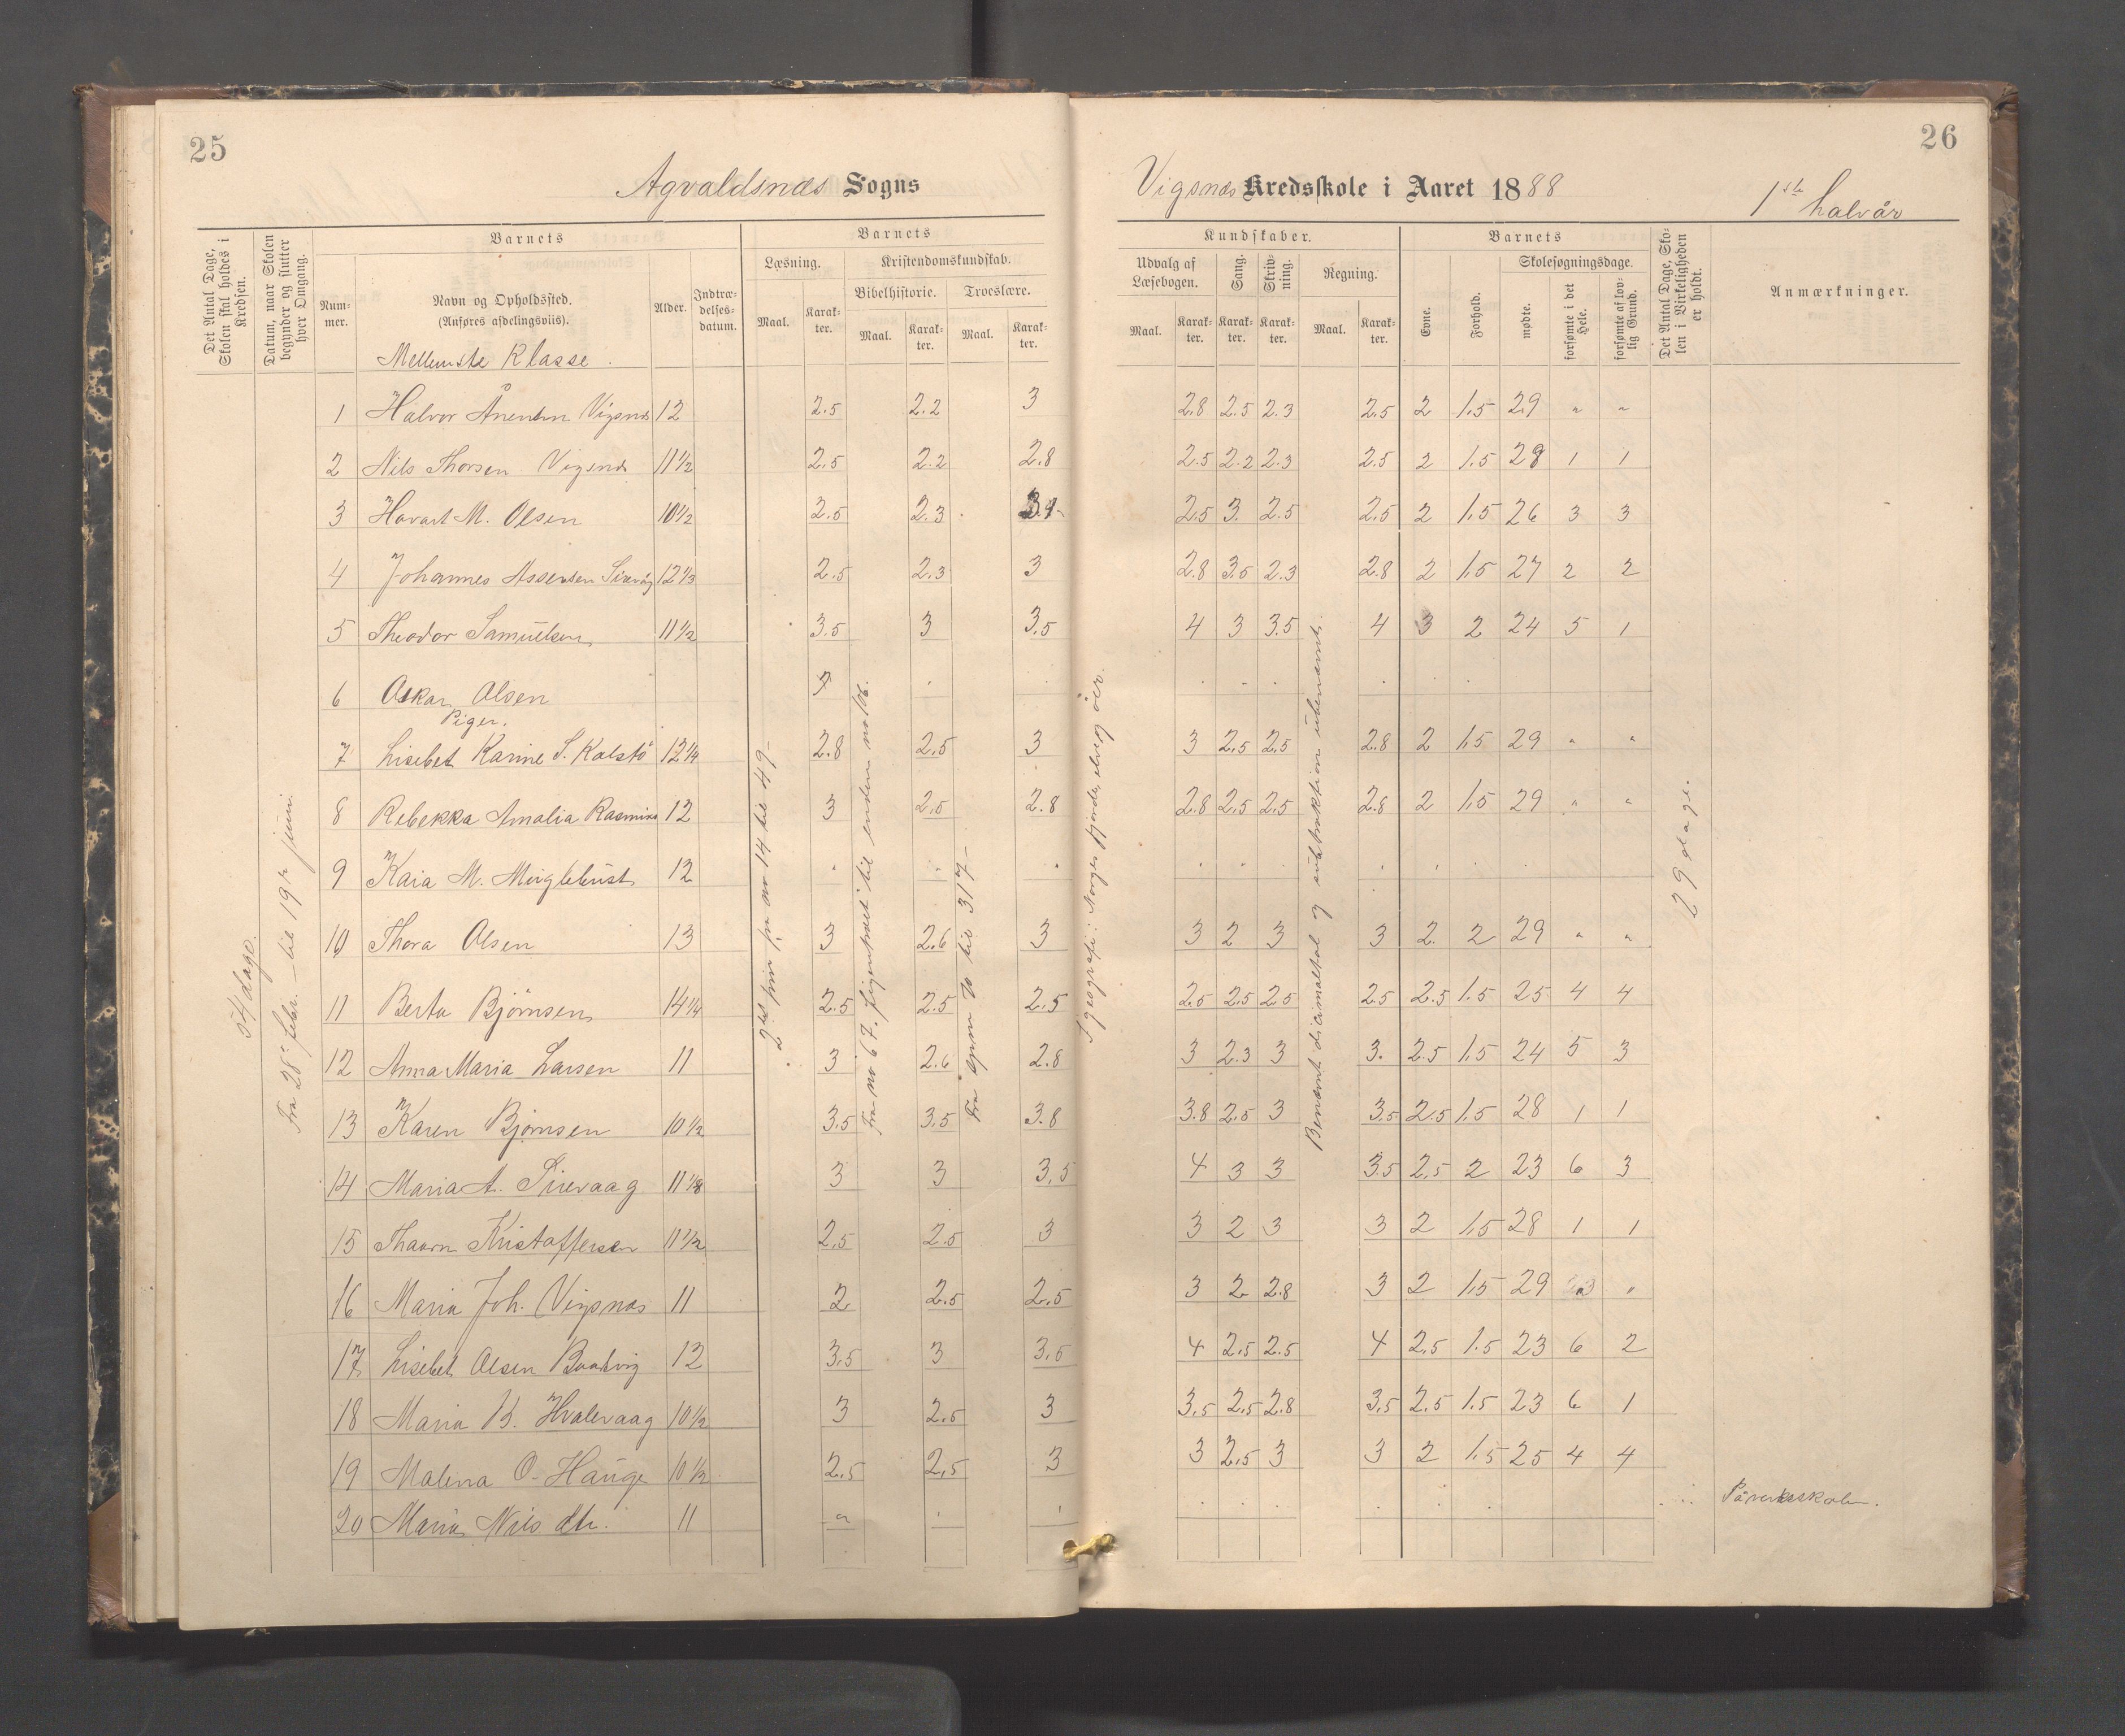 25
26
Agvaldsnæs Sogns
Vigsnæs Kredsskole i Aaret 1888
1ste halvår
Det Antal Dage, Skolen skal holdes i Kredsen.
Datum, naar Skolen begynder og slutter hver Omgang.
Barnets
Num-
mer.
Navn og Opholdssted.
(Anføres afdelingsviis).
Mellemste Klasse.
Alder.
Indtræ-
delses-
datum.
Barnets
Læsning.
Maal.
Karak-
ter.
Kristendomskundskab.
Bibelhistorie.
Maal.
Karak-
ter.
Troeslære.
Maal.
Karak-
ter.
Kundskaber.
Udvalg af
Læsebogen.
Maal.
Karak-
ter.
Sang.
Karak-
ter.
Skriv-
ning.
Karak-
ter.
Regning.
Maal.
Karak-
ter.
Barnets
Evne.
Forhold.
Skolesøgningsdage.
mødte.
forsømte i det Hele.
forsømte af lov-
lig Grund.
Det Antal Dage, Sko-
len i Virkeligheden
er holdt.
Anmærkninger.
54 dage.
Fra 28de febr. – til 19de juni.
fra no 14 til 49
Fra no 67. til enden no 106.
til 317 –
I geografi: Norges fjorde, elve og øer.
Benævnt decimaltal og subtraktion ubenævnt.
29 dage.
1 Halvor Vigsnes 12 2.5 2.2 3 2.8 2.5 2.3 2.5 2 1.5 29 " "
2 Nils Thorsen Vigsnes 11 1/2 2.5 2.2 2.8 2.5 2.2 2.3 2.5 2 1.5 28 1 1
3 M. Olsen 10 1/2 2.5 2.3 2.5 3. 2.5 2.5 2 1.5 26 3 3
4 Johannes Assersen 12 1/3 2.5 2.3 3 2.8 3.5 2.3 2.8 2 1.5 27 2 2
5 Theodor Samuelsen 11 1/2 3.5 3 3.5 4 3 3.5 4 3 2 24 5 1
6 Oskar Olsen
Piger.
7 Lisebet Karine S. Kolstö 12 1/4 2.8 2.5 3 3 2.5 2.5 2.8 2 1.5 29 " "
8 Rebekka Amalia 12 3 2.5 2.8 2.8 2.5 2.5 2.8 2 1.5 29 " "
9 Kaia M. 12
10 Thora Olsen 13 3 2.6 3 3 2 3 3 2. 2 29 " "
11 Berta Björnsen 14 1/4 2.5 2.5 2.5 2.5 2.5 2.5 2.5 2.5 1.5 25 4 4
12 Anna Maria Larsen 11 3 2.6 2.8 3 2.3 3 3. 2.5 1.5 24 5 3
13 Karen Björnsen 10 1/2 3.5 3.5 3.8 3.8 2.5 3 3.5 2.5 1.5 28 1 1
14 Maria A. Sirevaag 11 1/8 3 3 3.5 4 3 3 3.5 2.5 2 23 6 3
15 Kristoffersen 11 1/2 2.5 2.5 3 3 2 3 3 2 1.5 28 1 1
16 Maria Joh. Vigsnæs 11 2 2.5 2.5 3 2 2.8 3 2 1.5 29 "
17 Lisebet Olsen 12 3.5 3 3.5 4 2.5 2.5 4 2.5 1.5 23 6 2
18 Maria K. Hvalevaag 10 1/2 3 2.5 3 3.5 2.5 2.8 3.5 2.5 1.5 23 6 1
19 Malena O. Hauge 10 1/2 2.5 2.5 3 3 2.5 3 3 2 1.5 25 4 4
20 Maria Nils dtr. 11 "